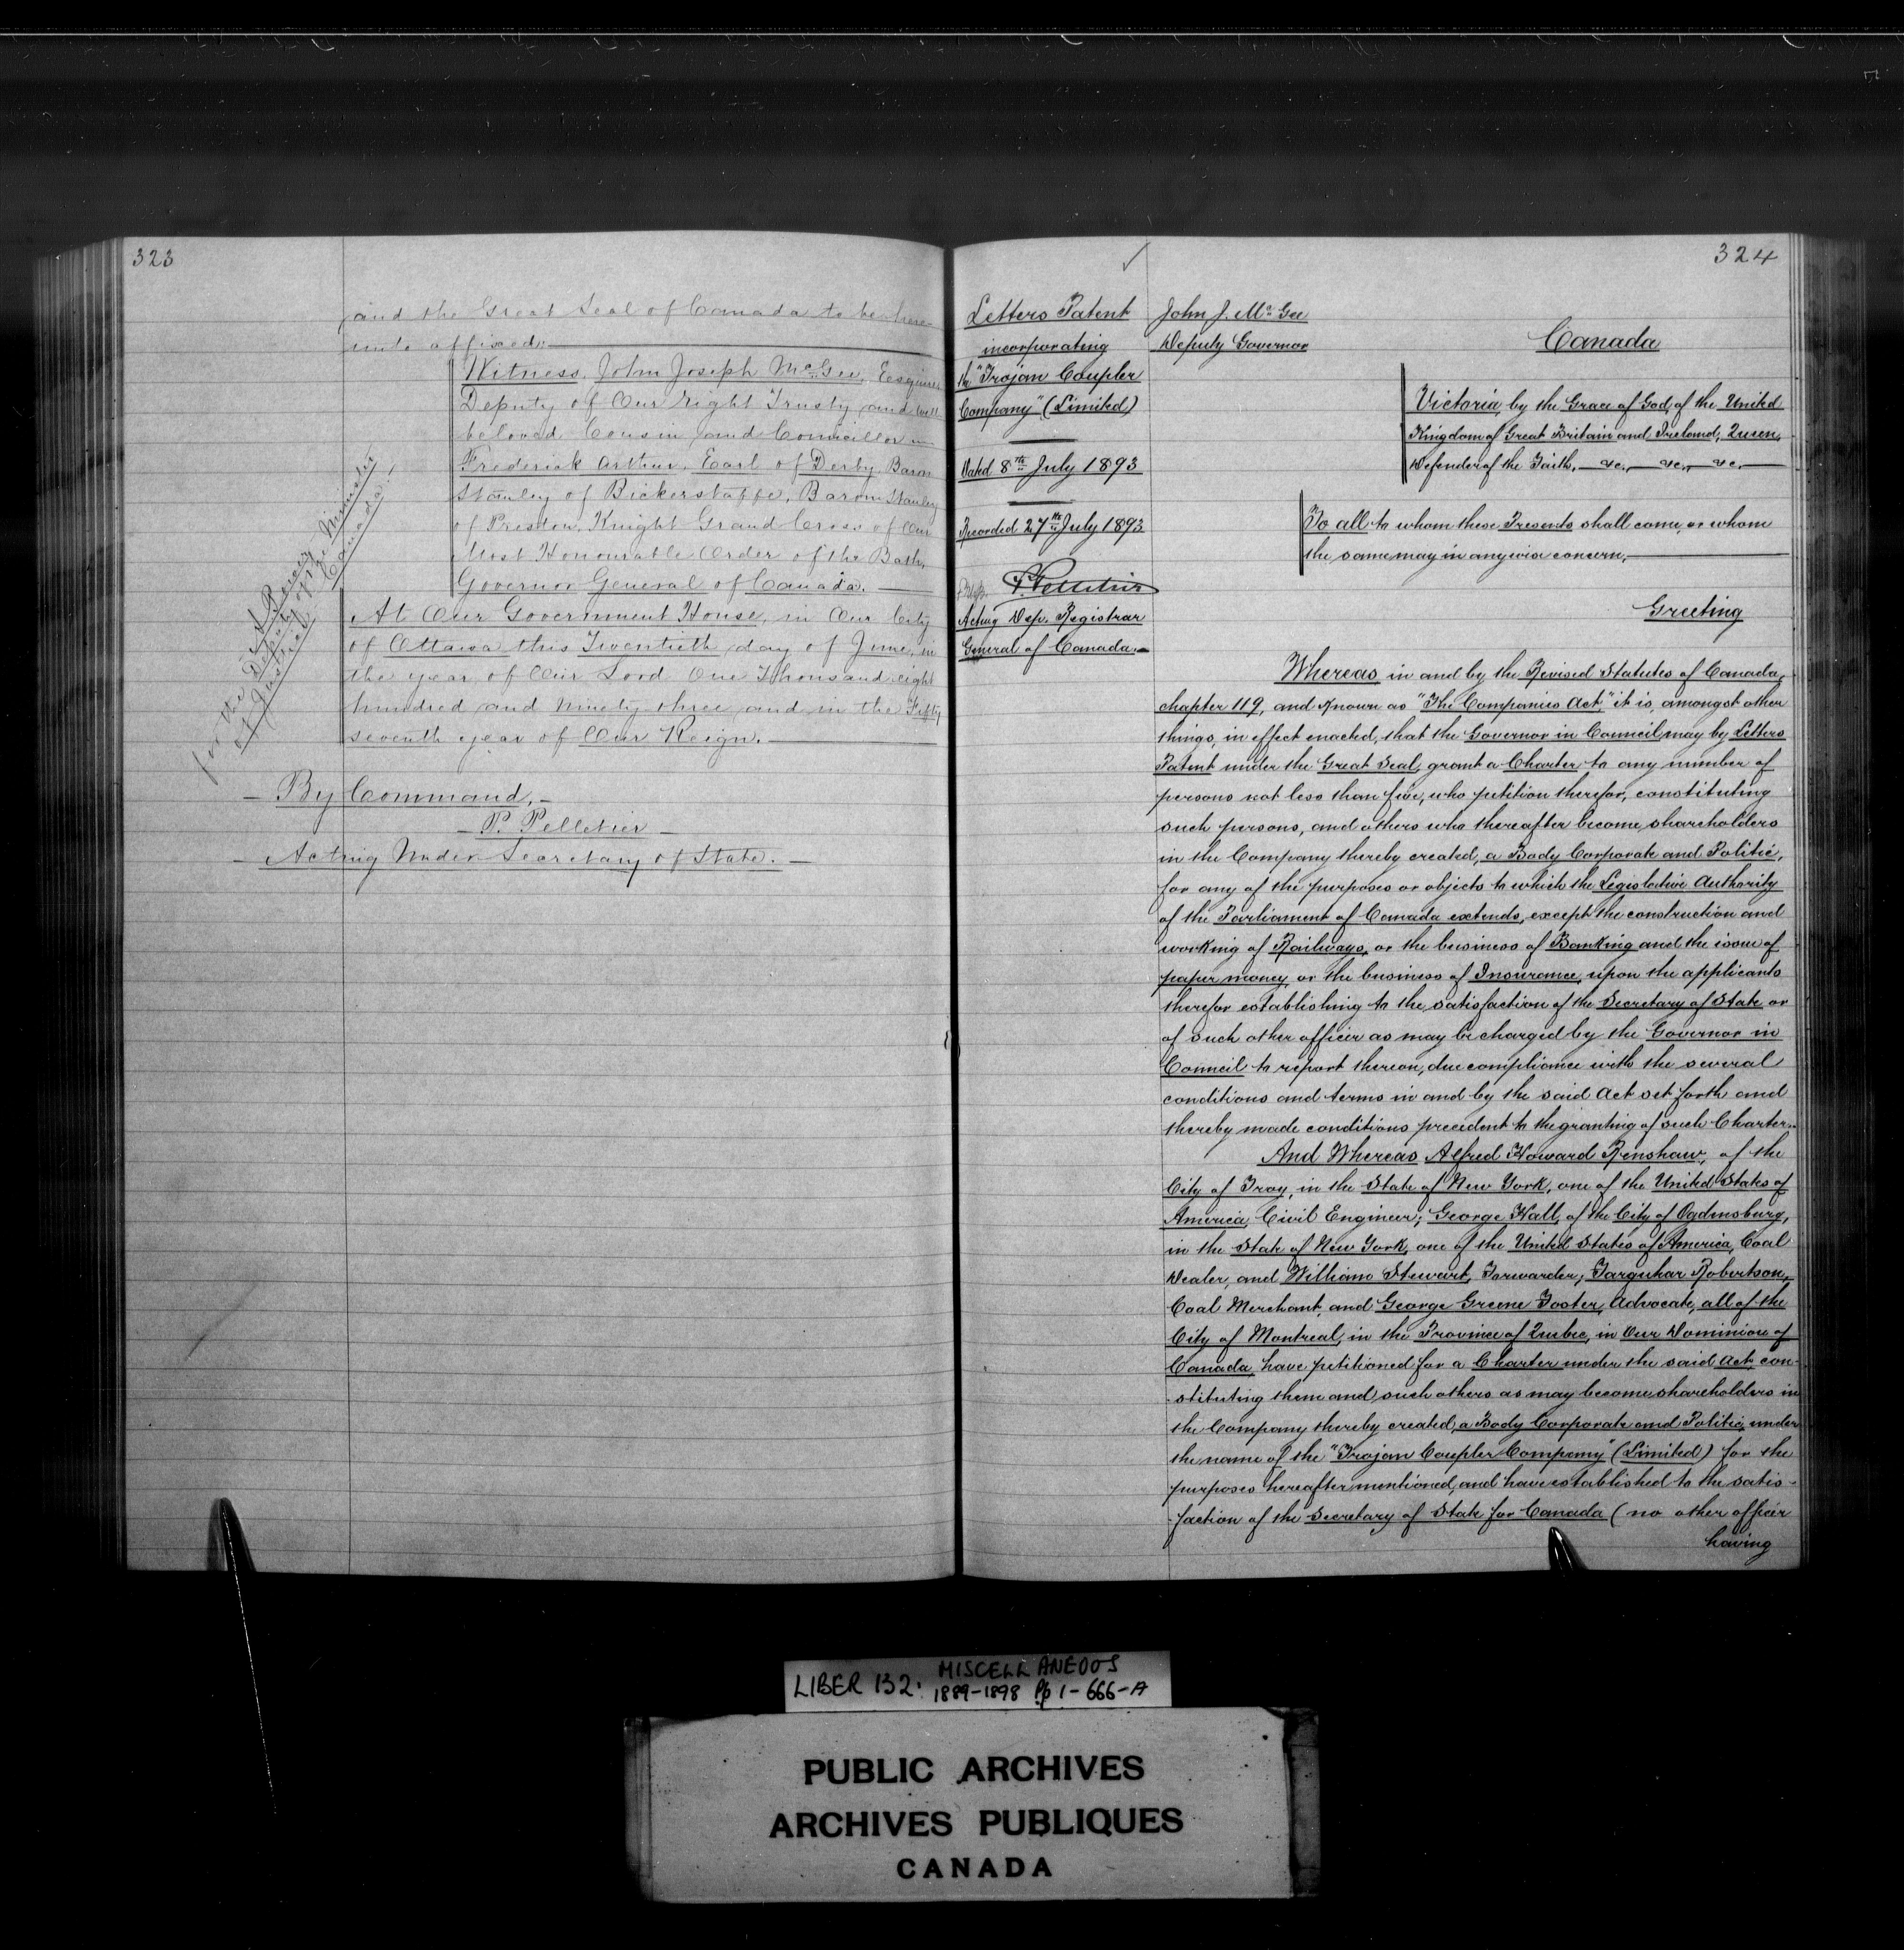 323
and the Great Seal of Canada to be here-
unto affixed:
Witness, John Joseph McGee, Esquire
Deputy of Our Right Trusty and well
beloved Cousin and Councillor
Frederick Arthur, Earl of Derby, Baron
Stanley of Bickerstaffe, Baron Stanley
of Preston, Knight Grand Cross of Our
Most Honourable Order of the Bath,
Governor General of Canada.
At Our Government House, in Our City
of Ottawa this Twentieth day of June, in
the year of Our Lord One Thousand eight
hundred and Ninety-three and in the Fifty
seventh year of Our Reign.
A Power
for the Deputy of the Minister
of Justice, Canada.
- By Command, -
- P. Pelletier -
- Acting Under Secretary of State. -
324
Letters Patent
incorporating
the "Trojan Coupler
Company" (Limited)
Dated 8th July 1893
Recorded 27th July 1893
P. Pelletier
Acting Dep. Registrar
General of Canada.
John J. McGee
Deputy Governor
Canada
Victoria, by the Grace of God, of the United
Kingdom of Great Britain and Ireland, Queen,
Defender of the Faith, &c., &c., &c.
To all to whom these Presents shall come, or whom
the same may in anywise concern,
Greeting
Whereas in and by the Revised Statutes of Canada,
chapter 119, and known as "The Companies Act," it is, amongst other
things, in effect enacted, that the Governor in Council may by Letters
Patent under the Great Seal, grant a Charter to any number of
persons not less than five, who petition therefor, constituting
such persons, and others who thereafter become shareholders
in the Company thereby created, a Body Corporate and Politic,
for any of the purposes or objects to which the Legislative Authority
of the Parliament of Canada extends, except the construction and
working of Railways, or the business of Banking and the issue of
paper money, or the business of Insurance, upon the applicants
therefor establishing to the satisfaction of the Secretary of State or
of such other officer as may be charged by the Governor in
Council to report thereon, due compliance with the several
conditions and terms in and by the said Act set forth and
thereby made conditions precedent to the granting of such Charter.
And Whereas Alfred Howard Renshaw, of the
City of Troy, in the State of New York, one of the United States of
America, Civil Engineer; George Hall, of the City of Ogdensburg,
in the State of New York, one of the United States of America, Coal
Dealer, and William Stewart, Forwarder; Farquhar Robertson,
Coal Merchant, and George Greene Foster, Advocate, all of the
City of Montreal, in the Province of Quebec, in Our Dominion of
Canada, have petitioned for a Charter under the said Act, con-
-stituting them and such others as may become shareholders in
the Company thereby created, a Body Corporate and Politic, under
the name of the "Trojan Coupler Company" (Limited) for the
purposes hereafter mentioned, and have established to the satis-
-faction of the Secretary of State for Canada (no other officer
having
LIBER 132: MISCELLANEOUS
1889-1898 Pp 1-666-A
PUBLIC ARCHIVES
ARCHIVES PUBLIQUES
CANADA